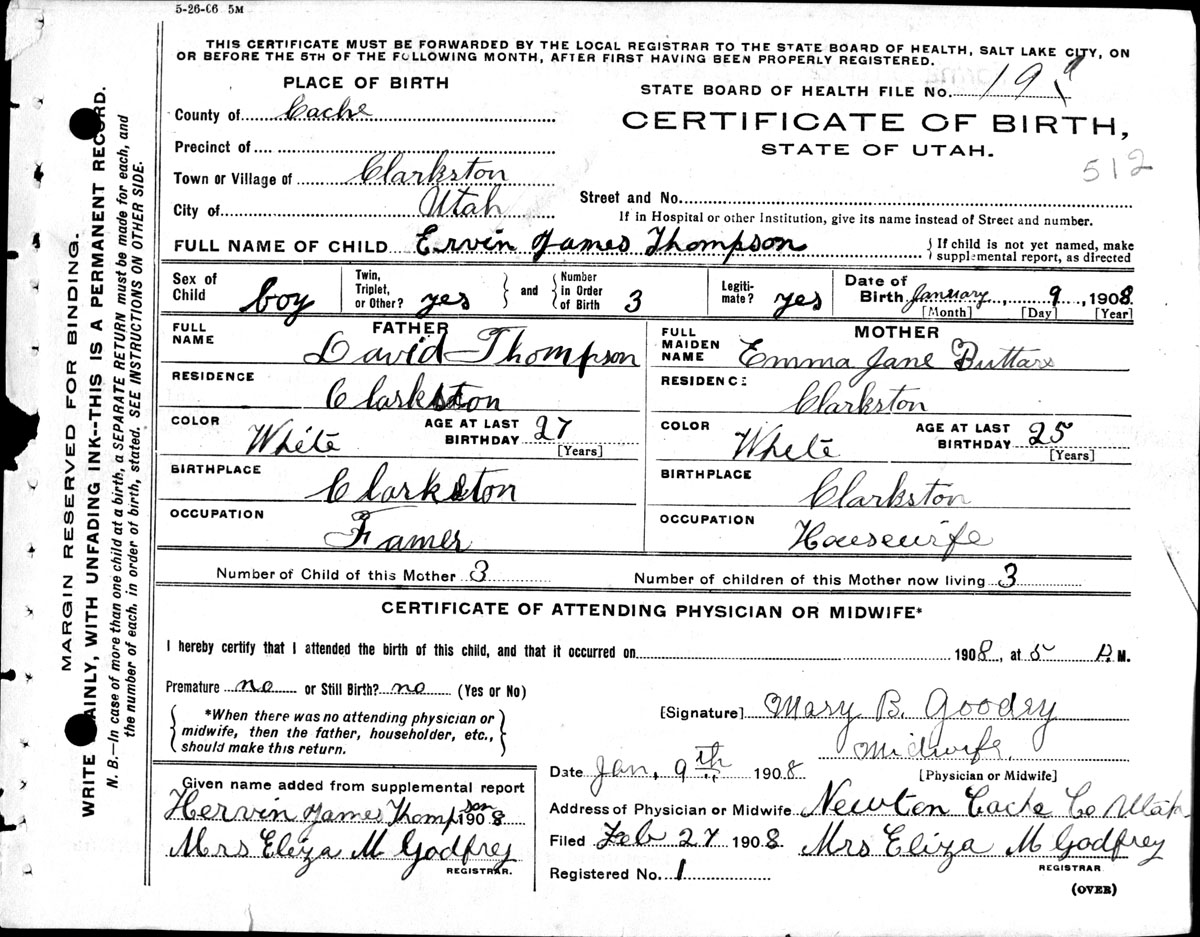 5-26-06 5M
THIS CERTIFICATE MUST BE FORWARDED BY THE LOCAL REGISTRAR TO THE STATE BOARD OF HEALTH, SALT LAKE CITY, ON
OR BEFORE THE 5TH OF THE FOLLOWING MONTH, AFTER FIRST HAVING BEEN PROPERLY REGISTERED.
PLACE OF BIRTH
STATE BOARD OF HEALTH FILE No. 19
County of Cache
CERTIFICATE OF BIRTH,
STATE OF UTAH.
512
Precinct of
Town or Village of Clarkston
City of Utah
Street and No.
If in Hospital or other Institution, give its name instead of Street and number.
FULL NAME OF CHILD Ervin James Thompson
{If child is not yet named, make
supplemental report, as directed
Sex of Child boy
Twin, Triplet, or Other? yes
} and {
Number in Order of Birth 3
Legiti-mate? yes
Date of Birth January, 9, 1908
[Month] [Day] [Year]
FATHER
FULL NAME David Thompson
RESIDENCE Clarkston
COLOR White AGE AT LAST BIRTHDAY 27
[Years]
BIRTHPLACE Clarkston
OCCUPATION Famer
MOTHER
FULL MAIDEN NAME Emma Jane Buttars
RESIDENCE Clarkston
COLOR White AGE AT LAST BIRTHDAY 25
[Years]
BIRTHPLACE Clarkston
OCCUPATION Housewife
Number of Child of this Mother 3 Number of children of this Mother now living 3
CERTIFICATE OF ATTENDING PHYSICIAN OR MIDWIFE*
I hereby certify that I attended the birth of this child, and that it occurred on 1908, at 5 P.M.
Premature no or Still Birth? no (Yes or No)
{*When there was no attending physician or
midwife, then the father, householder, etc.,
should make this return.}
[Signature] Mary B. Goodey
Midwife.
[Physician or Midwife]
Date Jan, 9th 1908
Address of Physician or Midwife Newton Cache Co Utah
Filed Feb 27 1908 Mrs Eliza M Godfrey
REGISTRAR
Registered No. 1
(OVER)
Given name added from supplemental report
Hervin James Thompson 1908
Mrs Eliza M Godfrey
REGISTRAR.
MARGIN RESERVED FOR BINDING.
WRITE PLAINLY, WITH UNFADING INK--THIS IS A PERMANENT RECORD.
N. B.—In case of more than one child at a birth, a SEPARATE RETURN must be made for each, and
the number of each, in order of birth, stated. SEE INSTRUCTIONS ON OTHER SIDE.